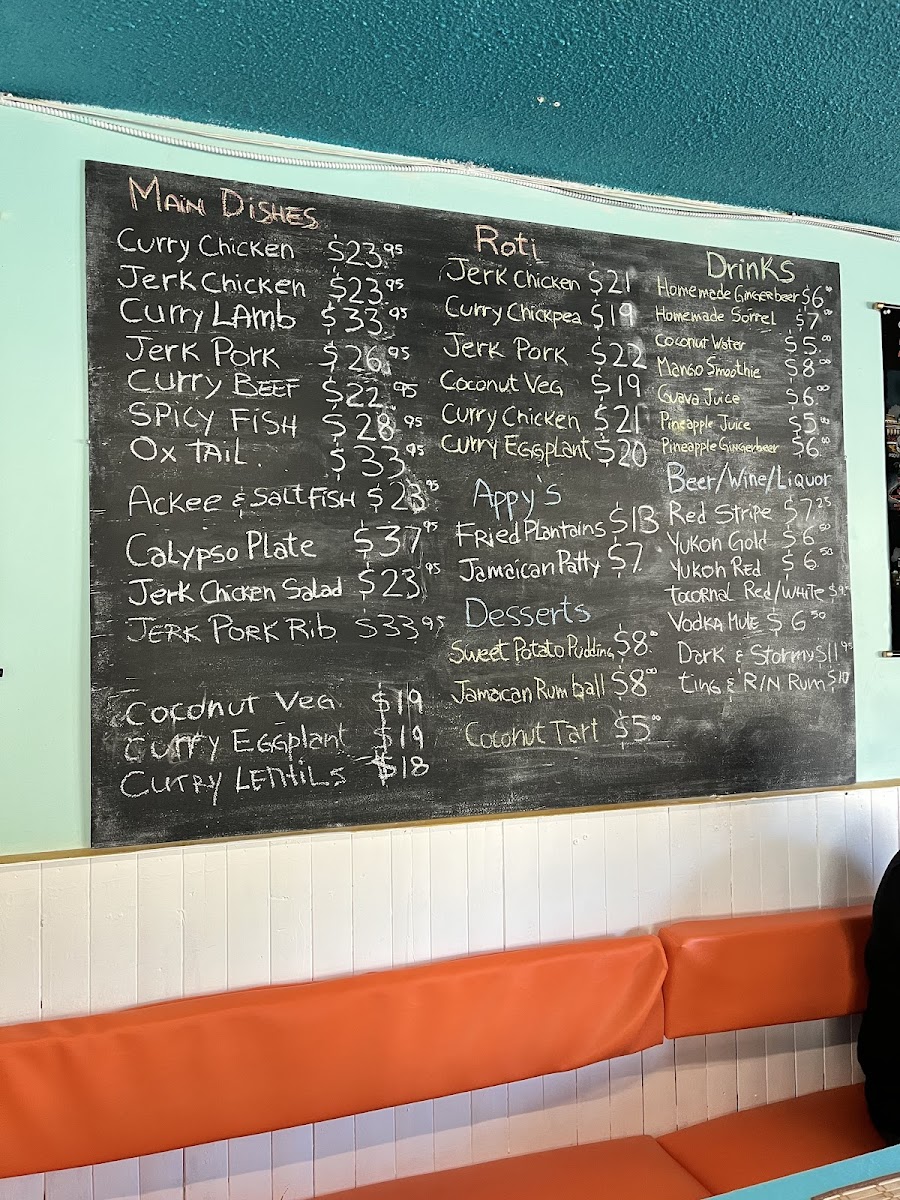 Main Dishes
Curry Chicken $23.95
Jerk Chicken $23.95
Curry Lamb $33.95
Jerk Pork $26.95
Curry Beef $22.95
Spicy Fish $28.95
Ox Tail. $33.95
Ackee & Saltfish $23.95
Calypso Plate $37.95
Jerk Chicken Salad $23.95
Jerk Pork Rib $33.95
Coconut Veg $19
Curry Eggplant $19
Curry Lentils $18
Roti
Jerk Chicken $21
Curry Chickpea $19
Jerk Pork $22
Coconut Veg $19
Curry Chicken $21
Curry Eggplant $20
Appy's
Fried Plantains $13
Jamaican Patty $7
Desserts
Sweet Potato Pudding $8.00
Jamaican Rum ball $8.00
Coconut Tart $5.00
Drinks
Homemade Gingerbeer $6.00
Homemade Sorrel $7.00
Coconut Water $5.00
Mango Smoothie $8.00
Guava Juice $6.00
Pineapple Juice $5.00
Pineapple Gingerbeer $6.00
Beer/Wine/Liquor
Red Stripe $7.25
Yukon Gold $6.50
Yukon Red $6.50
Red/White
Vodka Mule $6.50
Dark & Stormy $11.95
Ting & R/N Rum $10